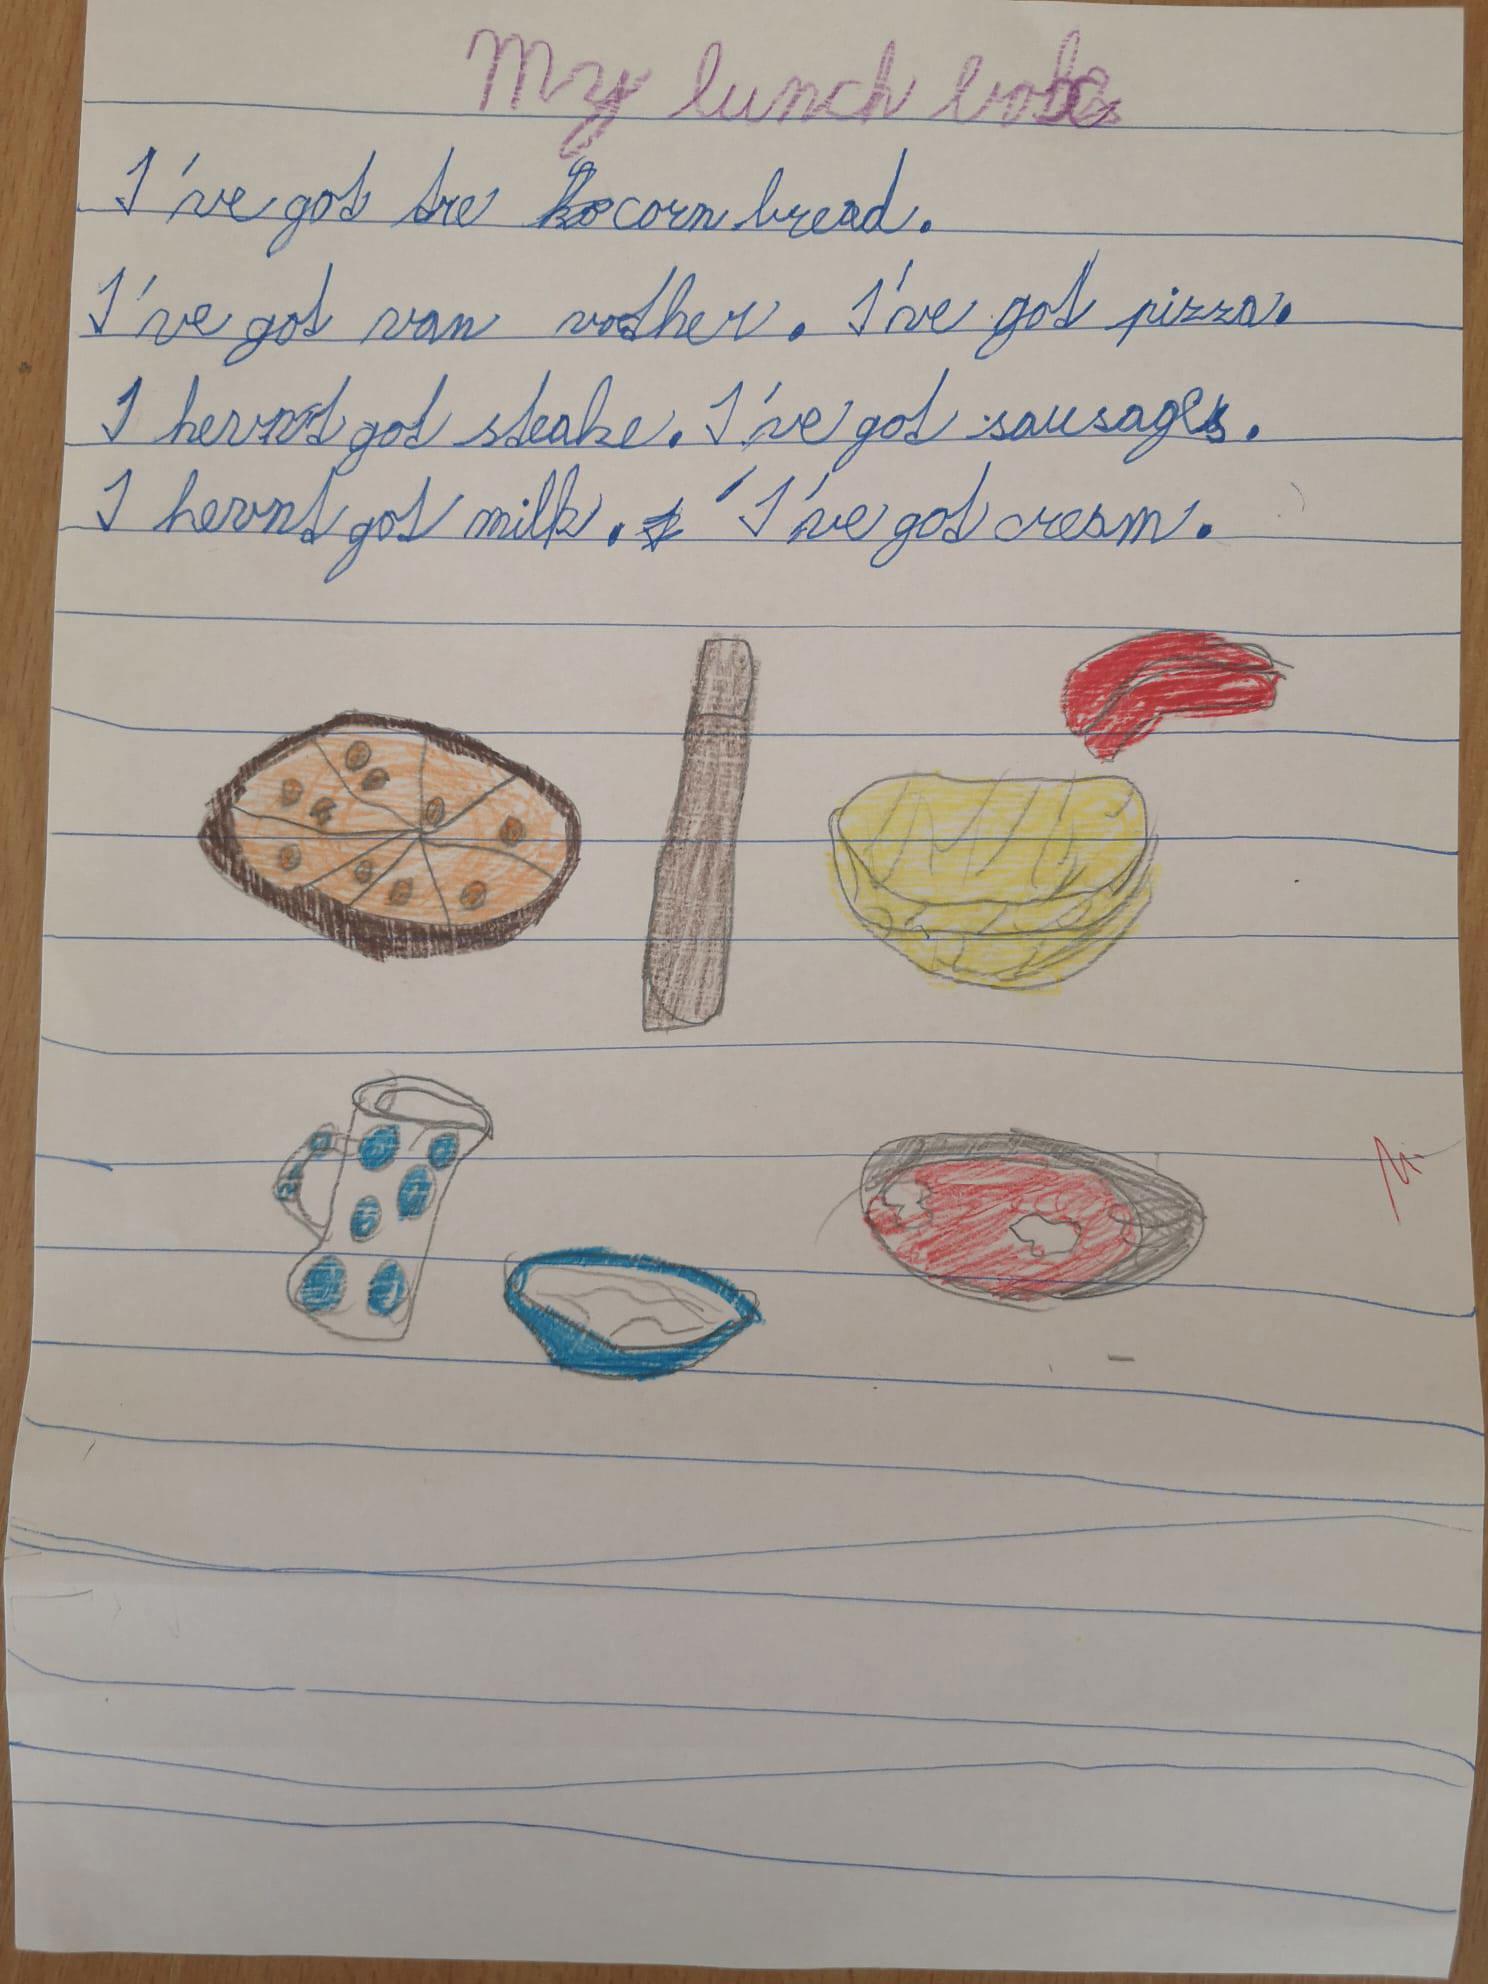 My lunch
I've got tre corn bread.
I've got van vother. I've got pizza.
I hevnt got steake. I've got sausages.
I hevnt got milk. I've got cream.